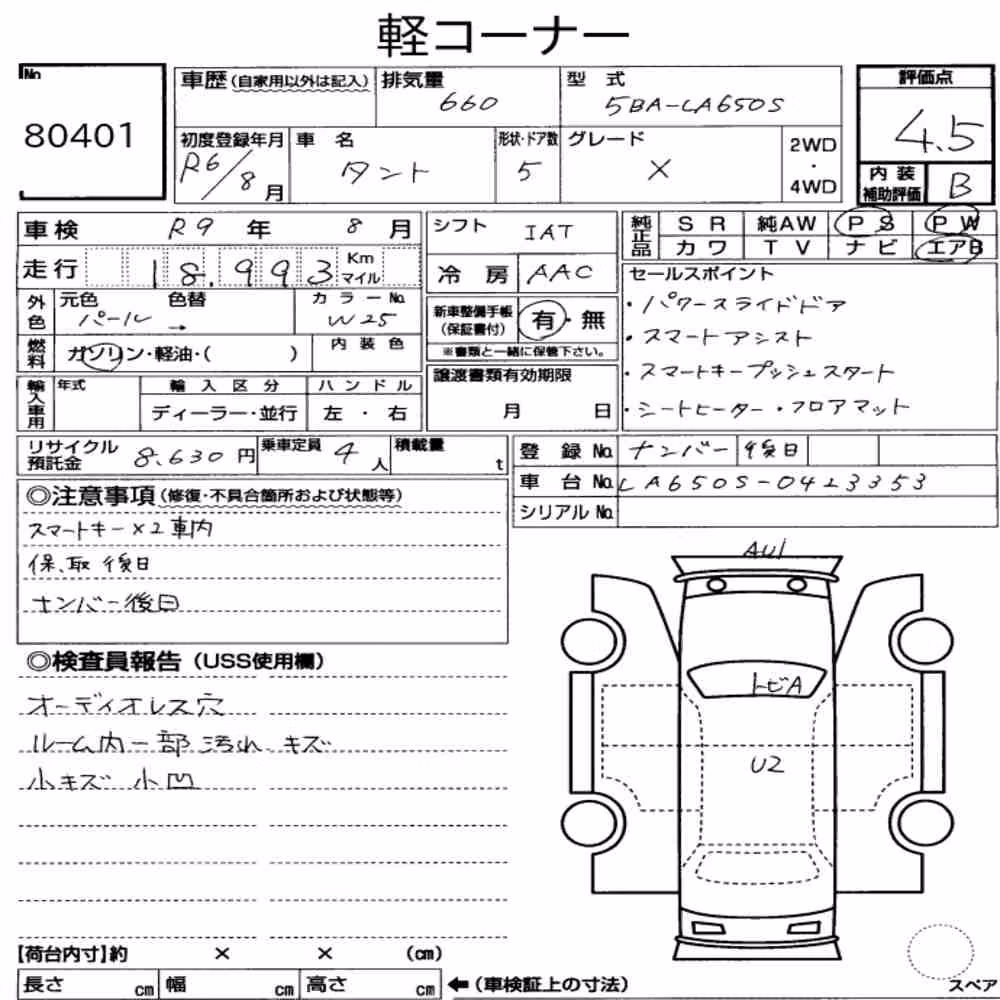 軽コーナー
No
80401
車歴(自家用以外は記入)
排気量
660
型 式
5BA-LA650S
評価点
4.5
初度登録年月
R6/8月
車 名
タント
形状・ドア数
5
グレード
X
2WD
・
4WD
内装
補助評価
B
車検 R9 年 8 月
シフト IAT
純正品
SR 純AW PS PW
カワ TV ナビ エアB
走行 18,993 Km
マイル
冷房 AAC
セールスポイント
・パワースライドドア
・スマートアシスト
・スマートキープッシュスタート
・シートヒーター・フロアマット
外色
元色 色替
パール →
カラーNo.
W25
新車整備手帳
(保証書付)
有・無
※書類と一緒に保管下さい。
燃料
ガソリン・軽油・( )
内装色
譲渡書類有効期限
月 日
輸入車用
年式
輸入区分
ディーラー・並行
ハンドル
左・右
リサイクル
預託金
8,630円
乗車定員
4人
積載量
t
登録No. ナンバー 後日
車台No. LA650S-0423353
シリアルNo.
◎注意事項(修復・不具合箇所および状態等)
スマートキー×2車内
保、取 後日
ナンバー後日
◎検査員報告(USS使用欄)
オーディオレス穴
ルーム内一部汚れ キズ
小キズ 小凹
AU1
トビA
U2
【荷台内寸】約 × × (cm)
長さ cm 幅 cm 高さ cm ←(車検証上の寸法)
スペア